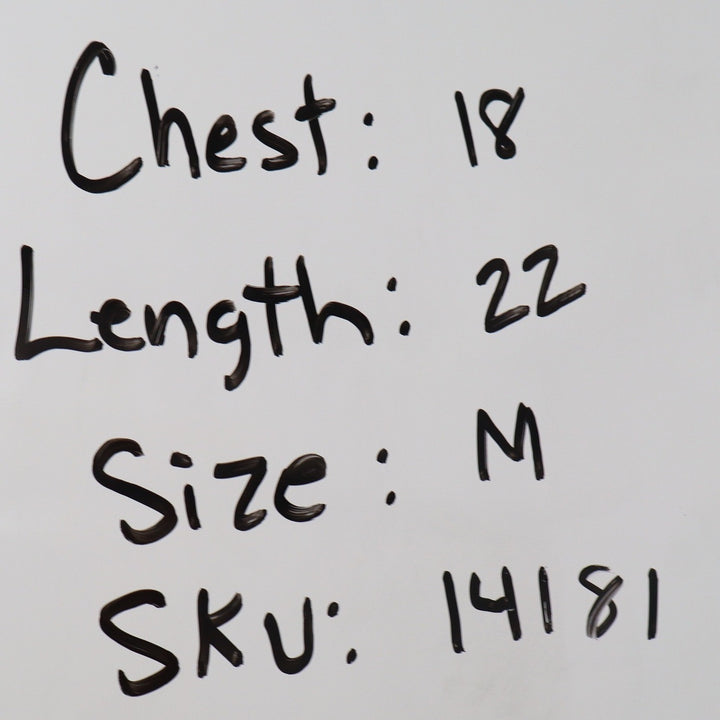 Chest: 18
Length: 22
Size: M
SKU: 14181